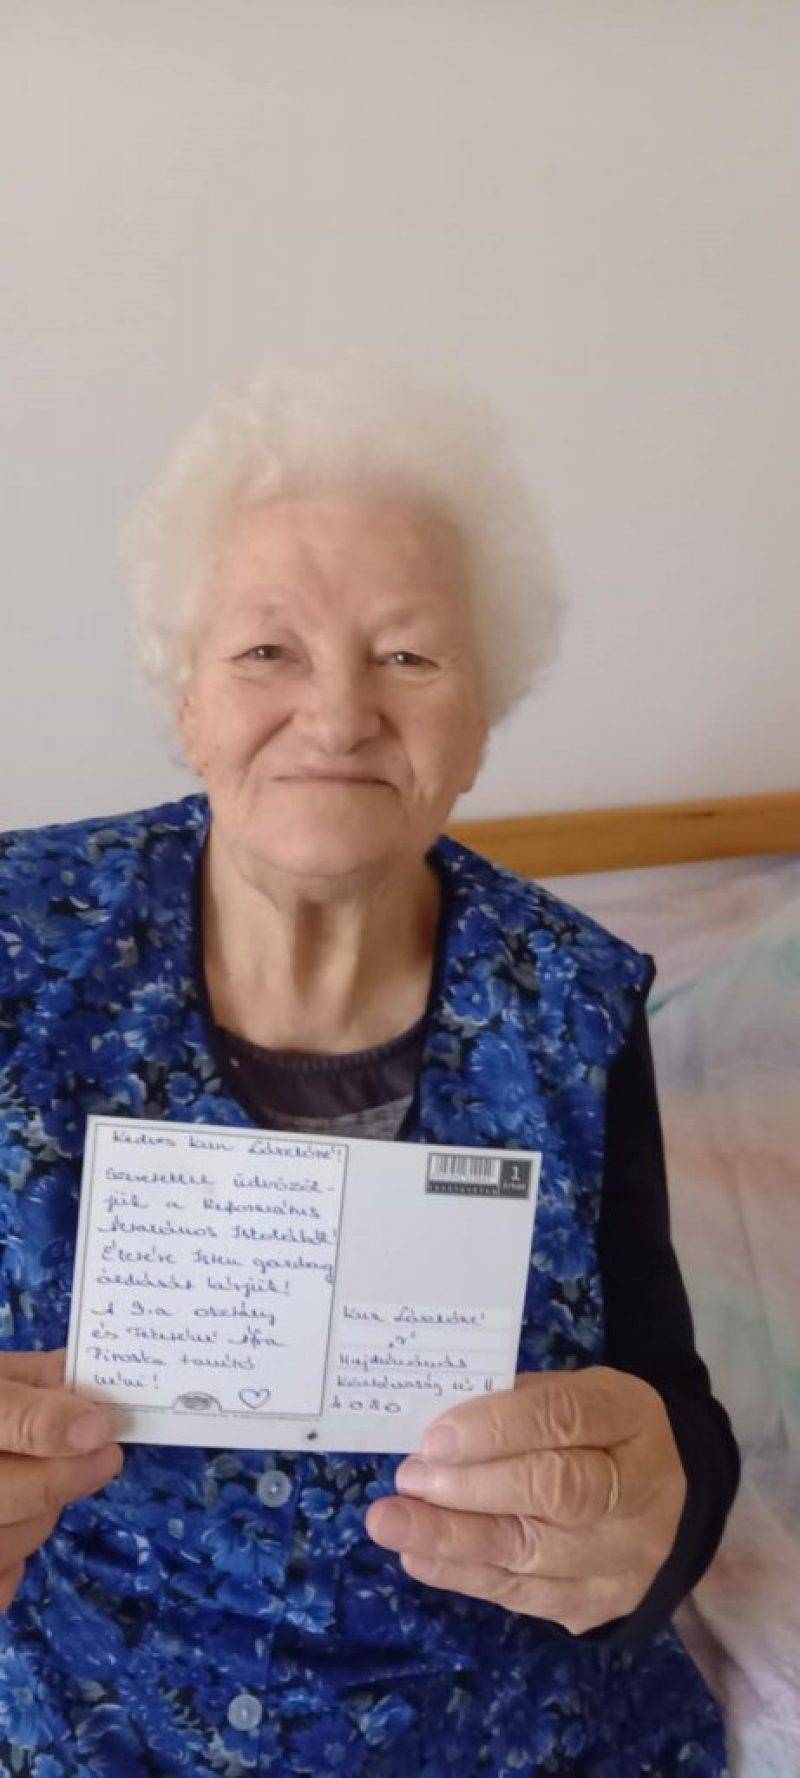 Kedves Kun Lászlóné!
Szeretettel üdvözöl-
jük a Református
Általános Iskolából!
Életére Isten gazdag
áldását kérjük!
A 3.a osztály
és
Piroska tanító
néni!
1
Kun Lászlóné
"r"
Hajdúnánás
4080